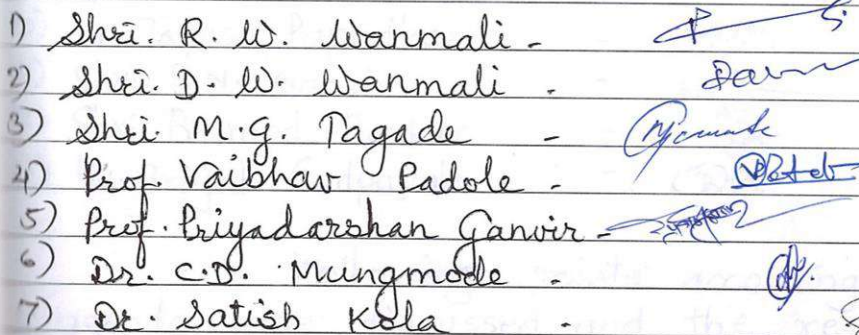 1) Shri. R. W. Wanmali -
2) Shri. D. W. Wanmali -
3) Shri. M. G. Tagade -
4) Prof. Vaibhav Padole -
5) Prof. Priyadarshan Ganvir -
6) Dr. C.D. Mungmode -
7) Dr. Satish Kola -